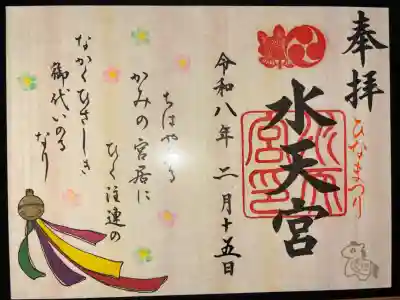 奉拝
ひなまつり
水天宮
水天
宮印
令和八年二月十五日
ちはやふる
かみの宮居に
ひく注連の
なかくひさしき
御代いのる
なり